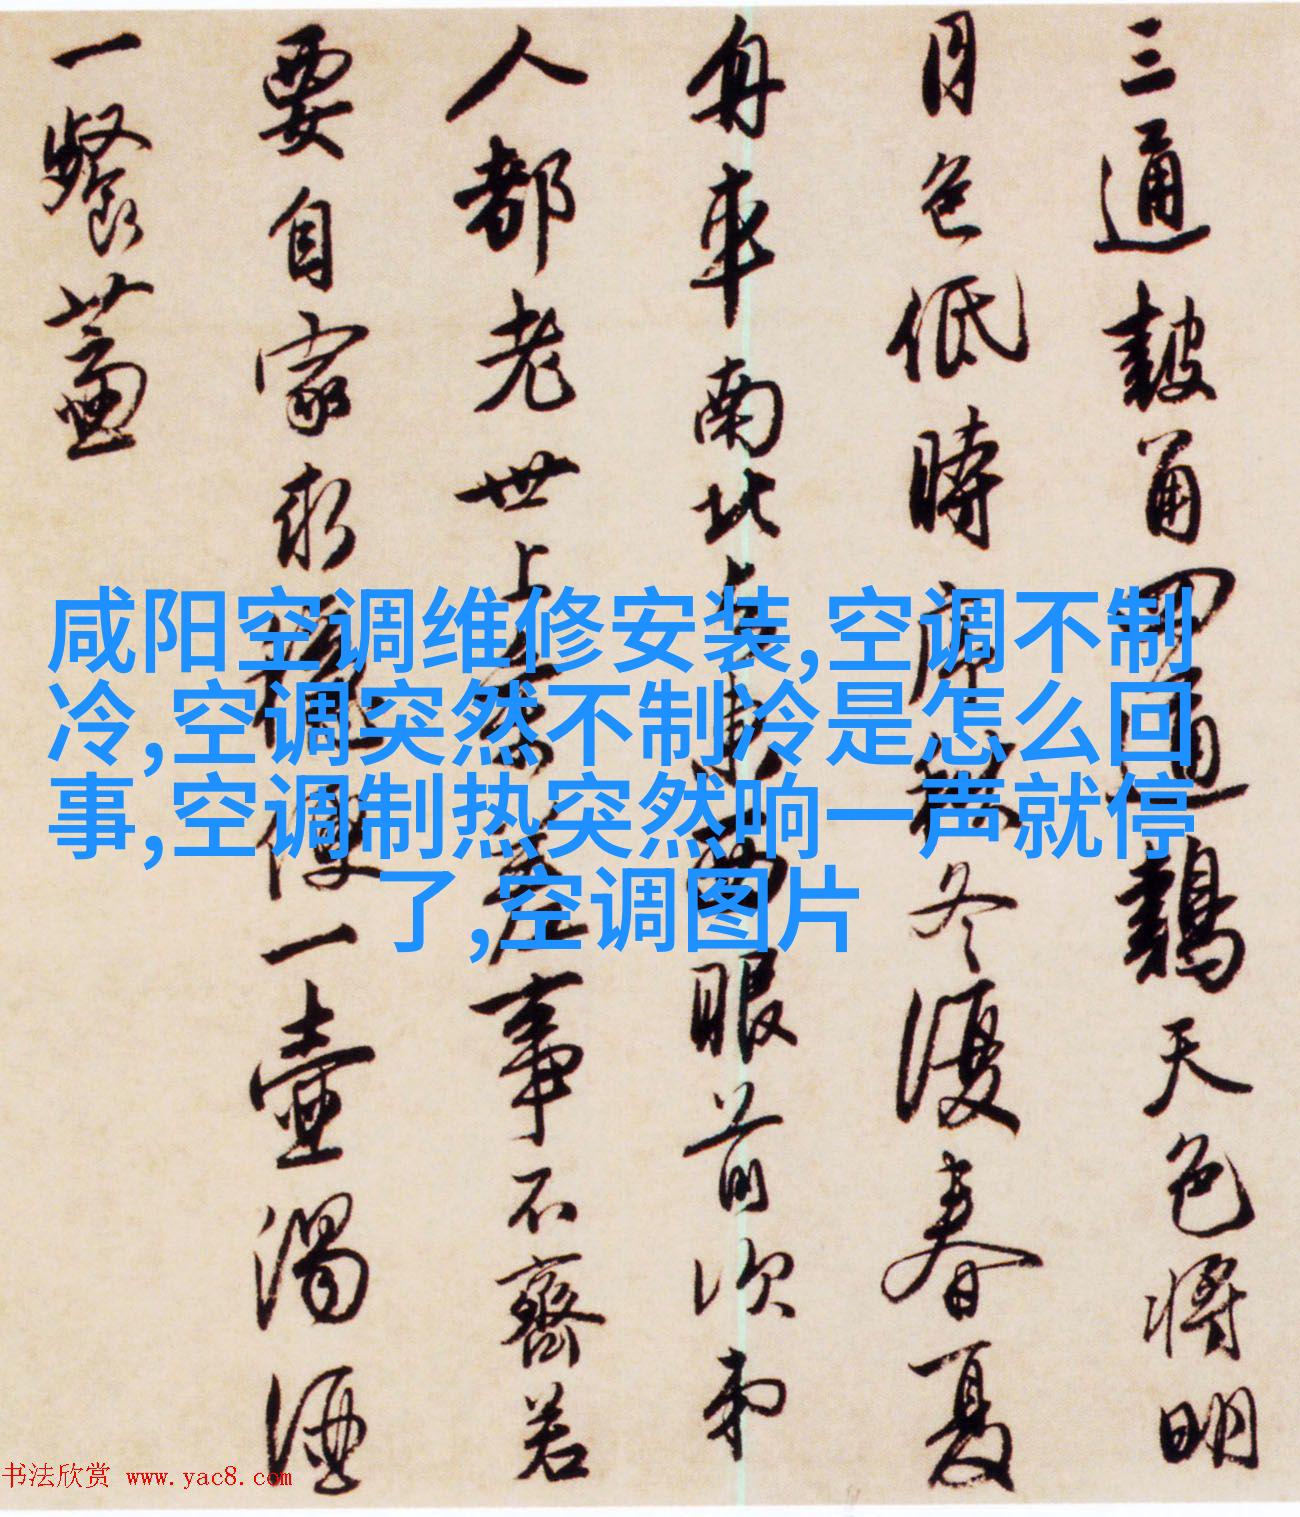 三通鼓角四通鷄天色將明
月色低時序秋冬復春夏
舟車南北與東西眼前次弟
人都老世上參差事不齊若
要自家求穩便一壺濁酒
一餐薺
咸阳空调维修安装,空调不制
冷,空调突然不制冷是怎么回
事,空调制热突然响一声就停
了,空调图片
书法欣赏 www.yac8.com